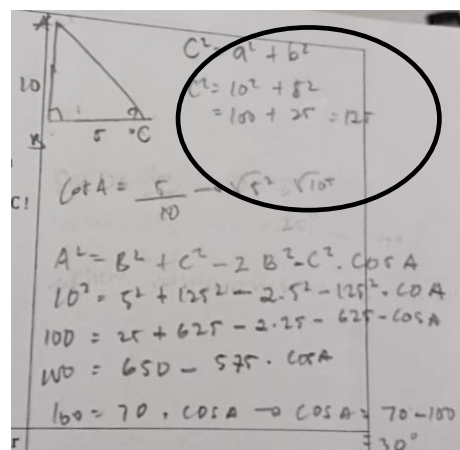 A
C² = a² + b²
10
C² = 10² + 5²
= 100 + 25 = 125
B
5
C
C!
Cos A = 5/10 → √5² √105
A² = B² + C² - 2 B² - C² . COS A
10² = 5² + 125² - 2.5² - 125² . CO A
100 = 25 + 625 - 2.25 - 625 - COSA
100 = 650 - 575 . COSA
100 = 70 . COSA → COSA = 70-100
r
= 30°